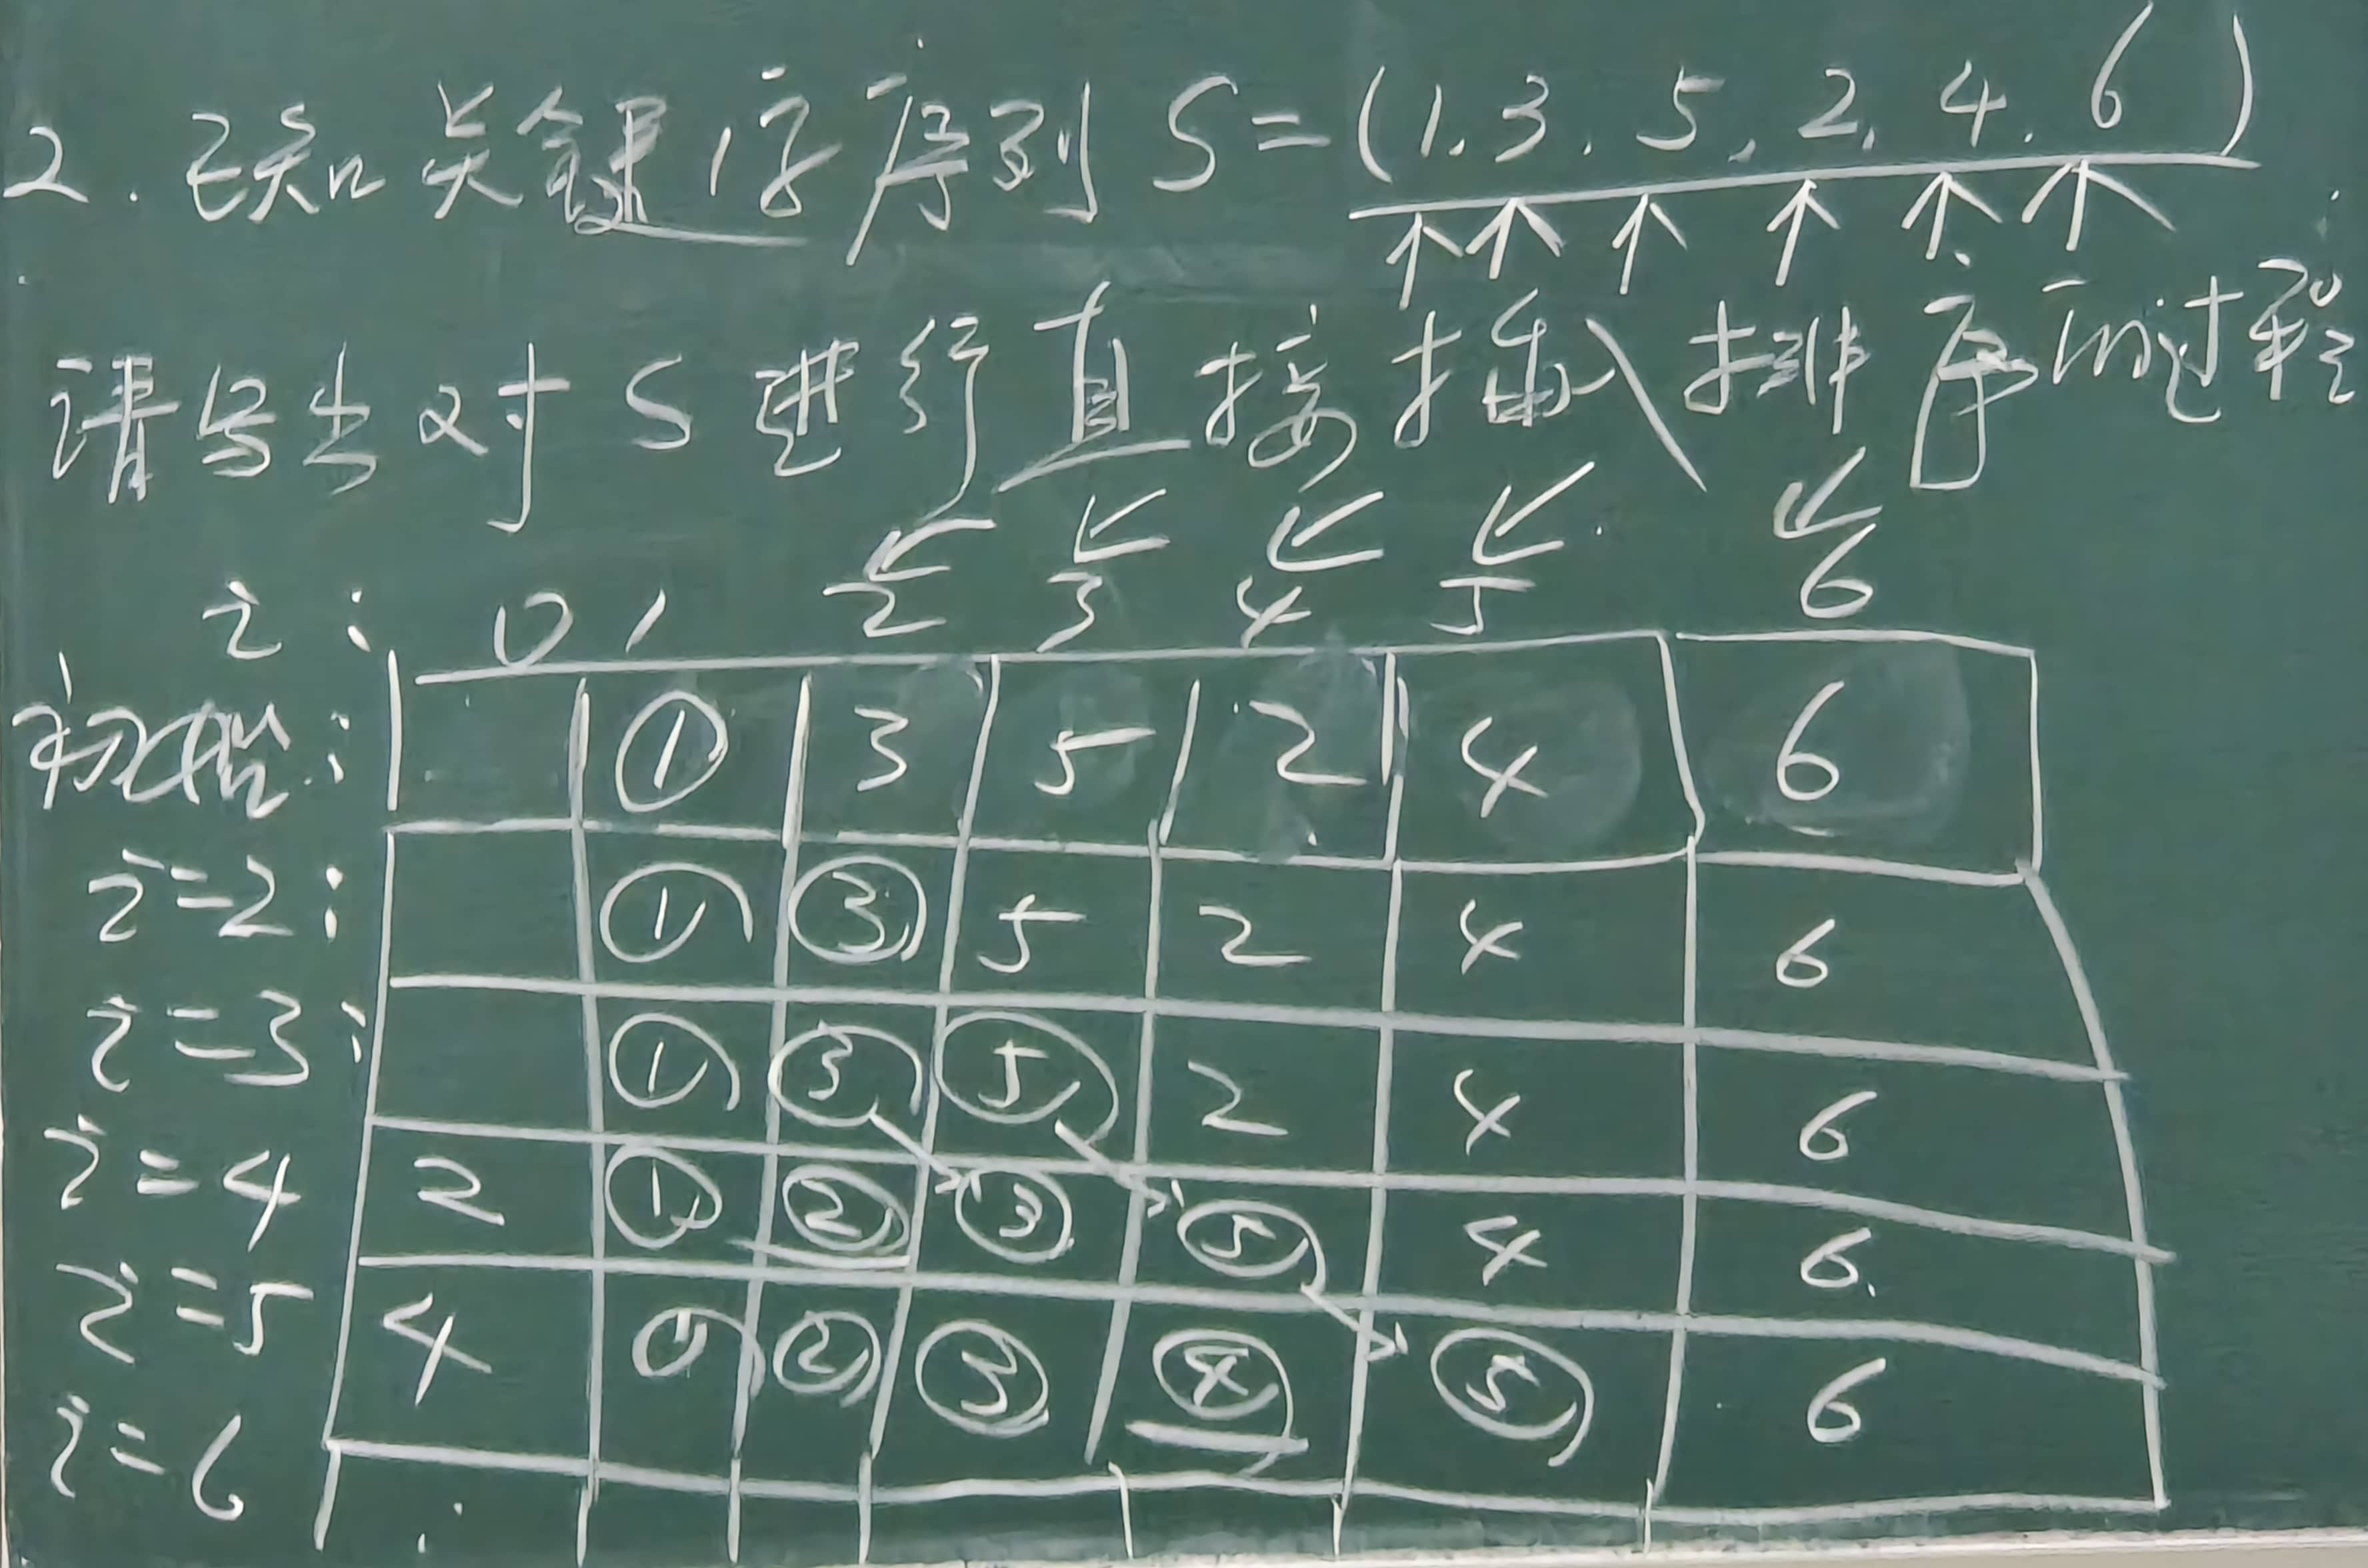 2. 已知关键字序列 S=(1. 3. 5. 2. 4. 6)
请写出对S进行直接插入排序的过程
i: 0 1 2 3 4 5 6
初始: ① 3 5 2 4 6
i=2: ① ③ 5 2 4 6
i=3: ① ③ ⑤ 2 4 6
i=4 2 ① ② ③ ⑤ 4 6
i=5 4 ① ② ③ ④ ⑤ 6
i=6